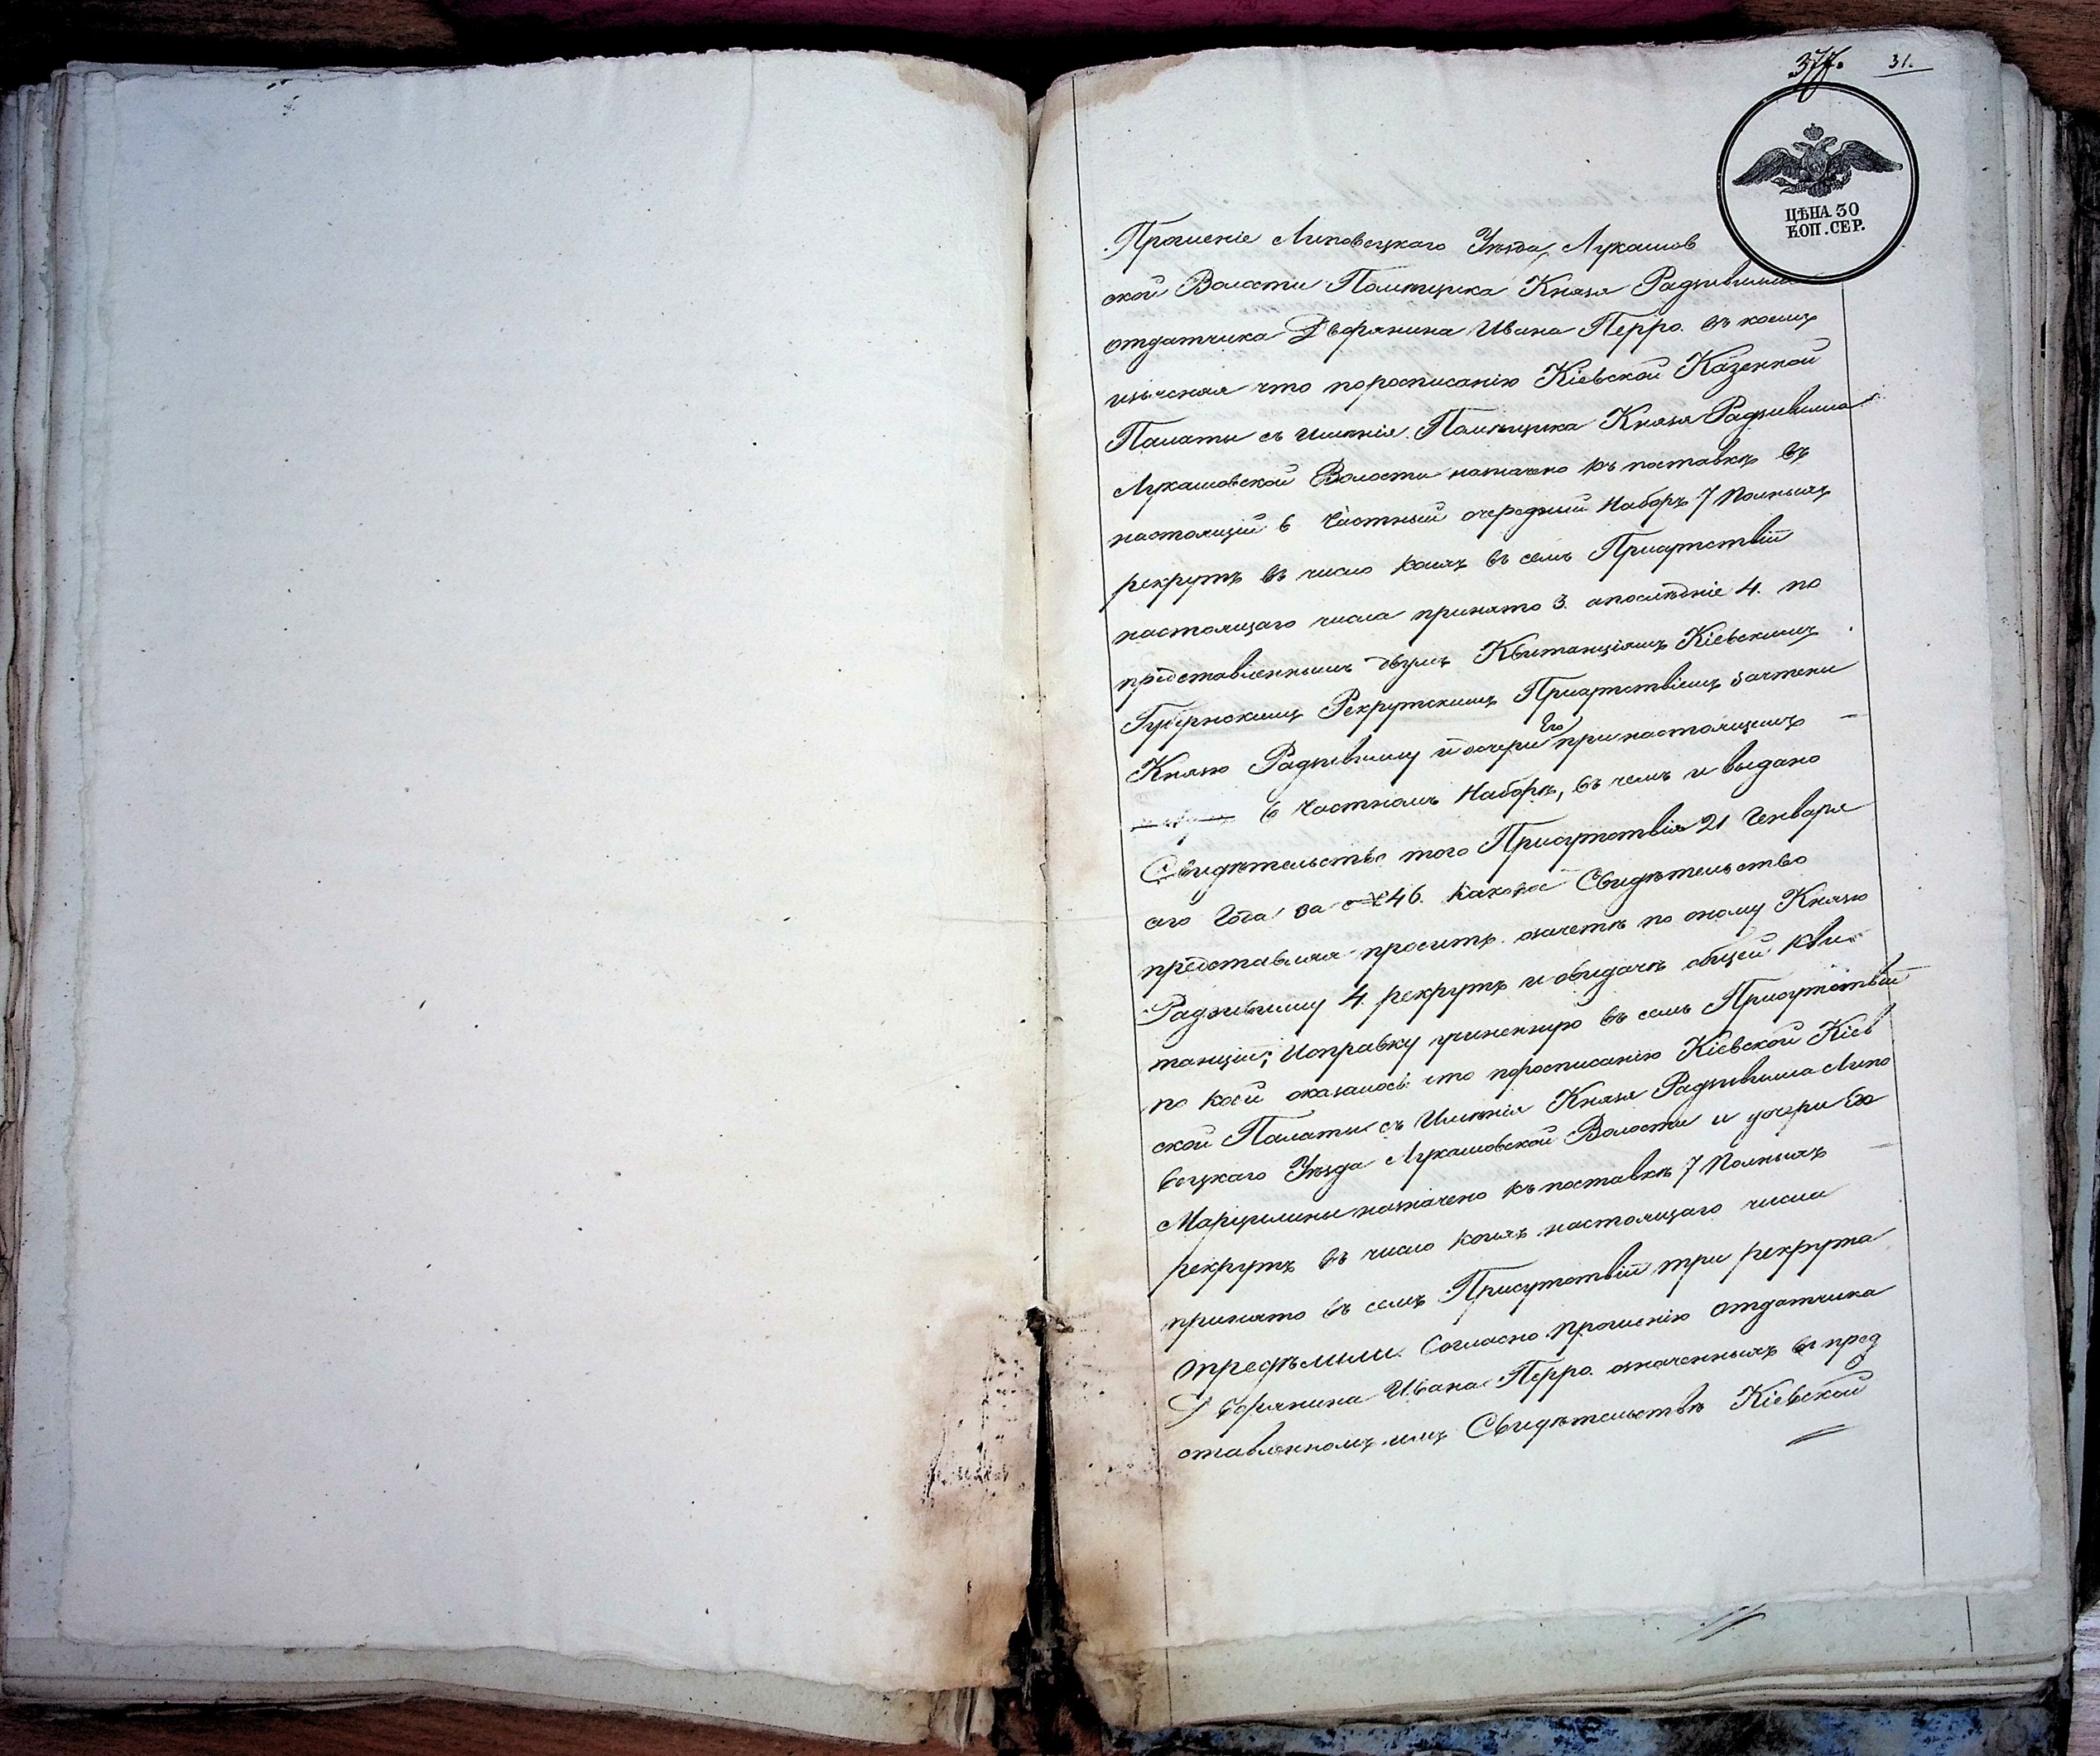 377. 31.
ЦѢНА 30
КОП. СЕР.
Прошеніе Липовецкаго Уѣзда, Лукашов
ской Волости Помѣщика Князя Радзивила
отдатчика Дворянина Ивана Перро. въ коемъ
изъясняя что поросписанію Кіевской Казенной
Палаты съ имѣнія Помѣщика Князя Радзивила
Лукашовской Волости назначено къ поставкѣ въ
настоящій 6 Частный очередный Наборъ 7 Полныхъ
рекрутъ въ число коихъ въ семъ Присутствіи
настоящаго числа принято 3. апослѣдніе 4. по
представленнымъ двумъ Квитанціямъ Кіевскимъ
Губернскимъ Рекрутскимъ Присутствіемъ зачтены
Князю Радзивилу и дочери Его при настоящемъ
6 Частномъ Наборѣ, въ чемъ и выдано
Свидѣтельство того Присутствія 21 Генваря
сего Года за № 46. каковое Свидѣтельство
представляя проситъ озачетѣ по оному Князю
Радзивилу 4. рекрутъ и овыдачѣ общей Кви
танціи; Исправку учиненную въ семъ Присутствіи
по коей оказалось: что поросписанію Кіевской Кіев
ской Палаты съ Имѣнія Князя Радзивила Липо
вецкаго Уѣзда Лукашовской Волости и дочери Его
Марцелины назначено къ поставкѣ 7 Полныхъ
рекрутъ въ число коихъ настоящаго числа
принято въ семъ Присутствіи три рекрута
опредѣлили. Согласно прошенію отдатчика
Дворянина Ивана Перро. означенныхъ въ пред
ставленномъ имъ Свидѣтельствѣ Кіевской